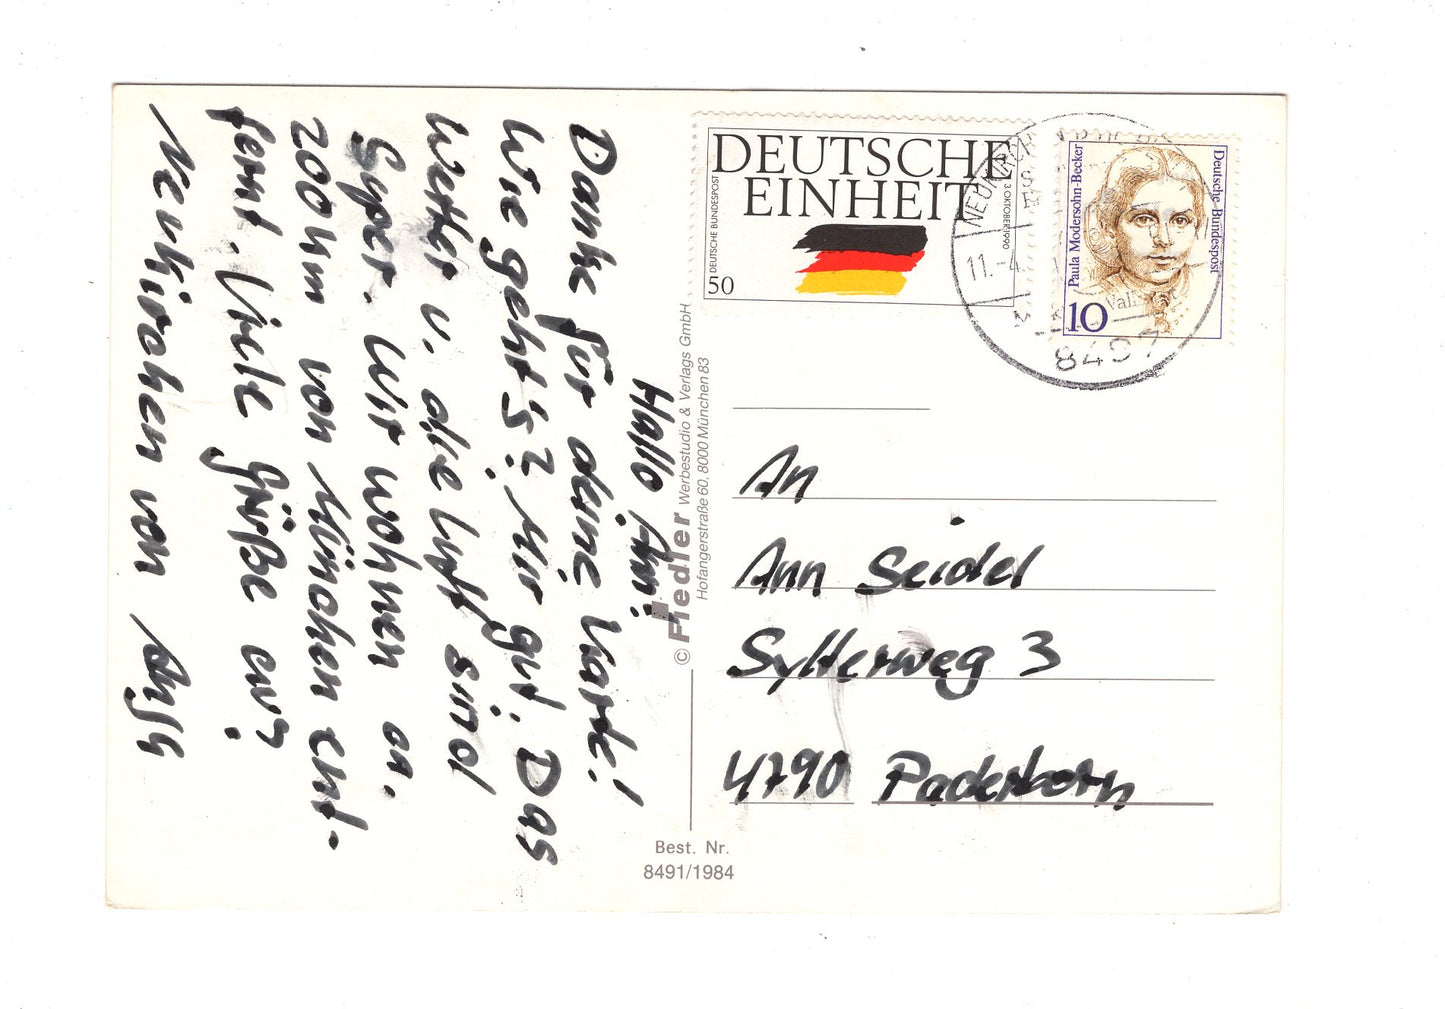 Hallo Ann!
Danke für deine Karte!
Wie geht's? Mir gut. Das
Wetter u. die Luft sind
Super. Wir wohnen ca.
200 km von München ent-
fernt. Viele Grüße aus
Neukirchen von
DEUTSCHE
EINHEIT
DEUTSCHE BUNDESPOST
3. OKTOBER 1990
50
Paula Modersohn-Becker
Deutsche Bundespost
10
11.-4
8497
An
Ann Seidel
Sylterweg 3
4790 Paderborn
© Fiedler Werbestudio & Verlags GmbH
Hofangerstraße 60, 8000 München 83
Best. Nr.
8491/1984